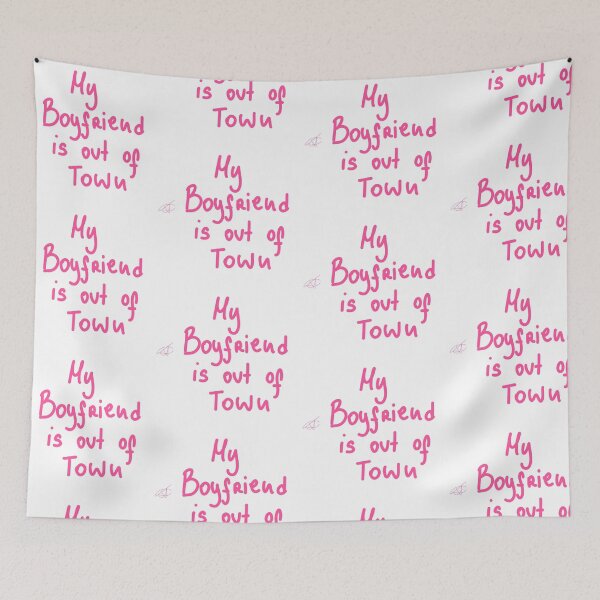 My
Boyfriend
is out of
Town
My
Boyfriend
is out of
Town
My
Boyfriend
is out of
Town
My
is out of
Town
My
Boyfriend
is out of
Town
My
Boyfriend
is out of
Town
My
Boyfriend
is out of
My
Boyfriend
is out of
Town
My
Boyfriend
is out of
Town
My
Boyfriend
is out of
Town
My
is out of
Town
My
Boyfriend
is out of
Town
My
Boyfriend
is out of
Town
My
Boyfriend
is out of